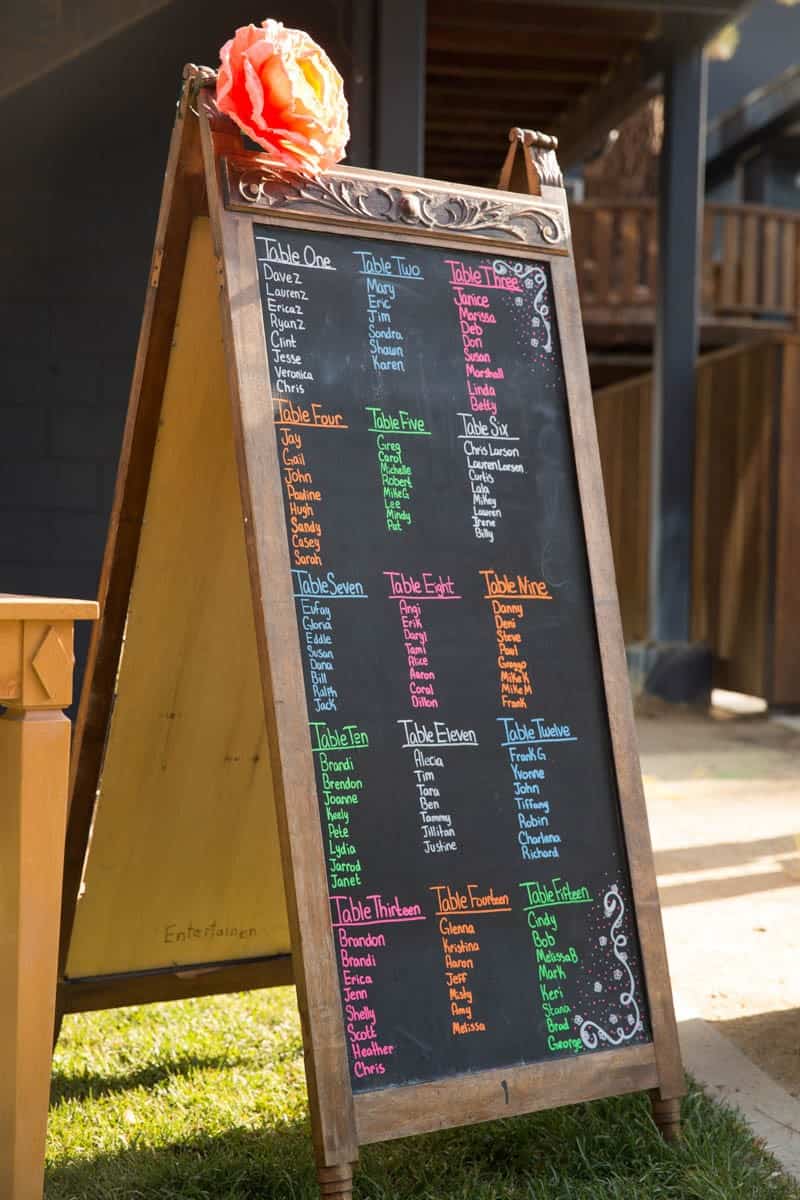 Table One
Dave Z
Lauren Z
Erica Z
Ryan Z
Clint
Jesse
Veronica
Chris
Table Two
Mary
Eric
Jim
Sondra
Shawn
Karen
Table Three
Janice
Marissa
Deb
Don
Susan
Marshall
Linda
Betty
Table Four
Jay
Gail
John
Pauline
Hugh
Sandy
Casey
Sarah
Table Five
Greg
Carol
Michelle
Robert
Mike G
Lee
Mindy
Pat
Table Six
Chris Larson
Lauren Larsen
Curtis
Lala
Mikey
Lauren
Irene
Billy
Table Seven
Eufay
Gloria
Eddie
Susan
Dana
Bill
Ralph
Jack
Table Eight
Angi
Erik
Daryl
Tami
Alice
Aaron
Coral
Dillon
Table Nine
Danny
Deni
Steve
Paul
Greggo
Mike K
Mike M
Frank
Table Ten
Brandi
Brendon
Joanne
Keely
Pete
Lydia
Jarrod
Janet
Table Eleven
Alecia
Tim
Tara
Ben
Tammy
Jillian
Justine
Table Twelve
Frank G
Yvonne
John
Tiffany
Robin
Charlena
Richard
Table Thirteen
Brandon
Brandi
Erica
Jenn
Shelly
Scott
Heather
Chris
Table Fourteen
Glenna
Kristina
Aaron
Jeff
Misty
Amy
Melissa
Table Fifteen
Cindy
Bob
Melissa B
Mark
Keri
Stana
Brad
George
Entertainen